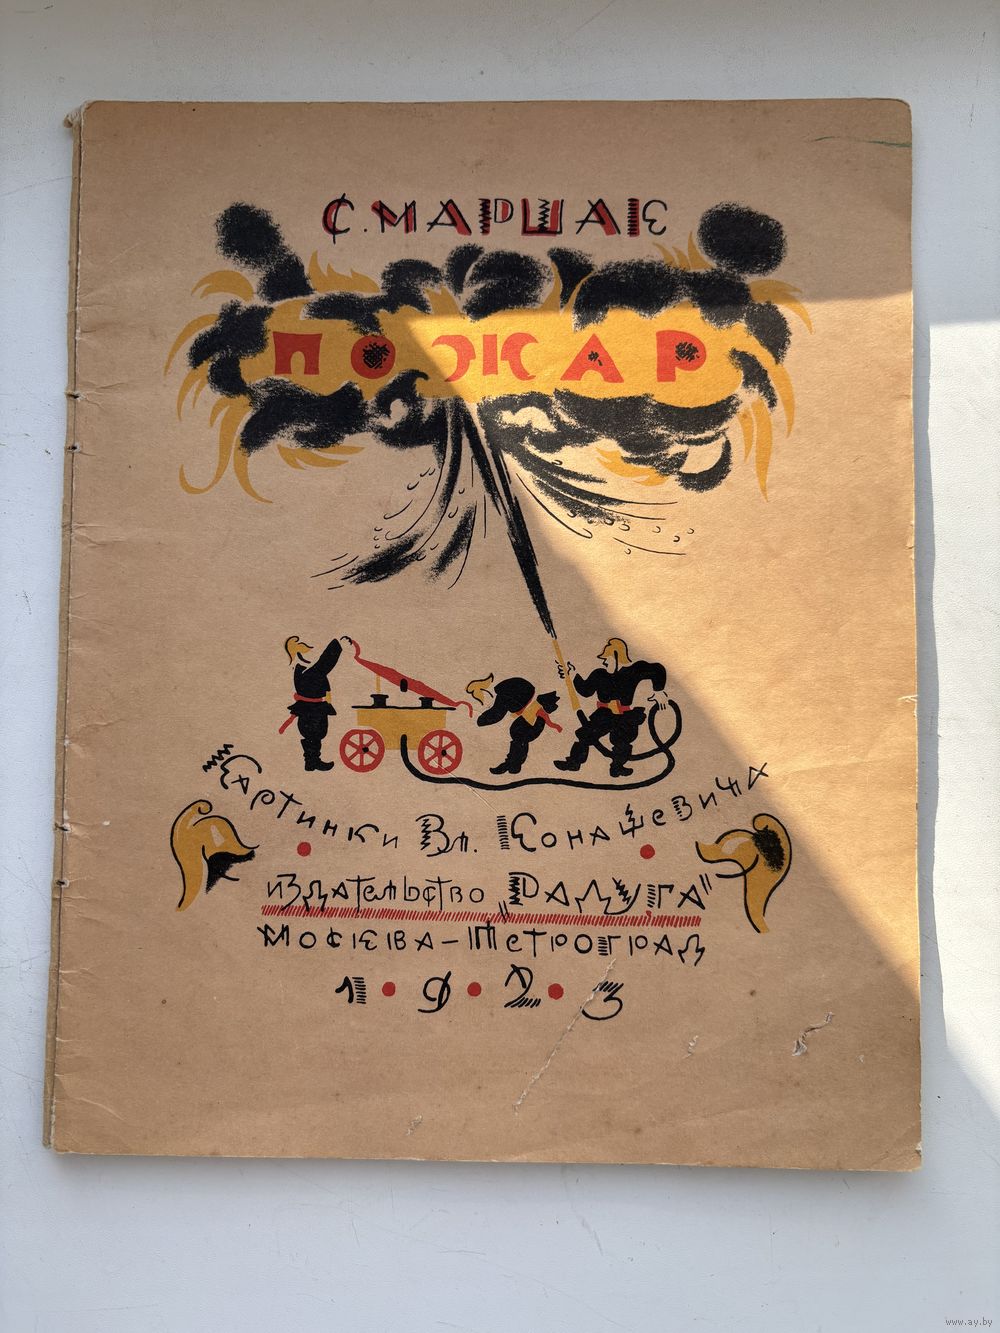 С. МАРШАК
ПОЖАР
Картинки Вл. Конашевича
издательство „РАДУГА"
Москва – Петроград
1 • 9 • 2 • 3
www.ay.by